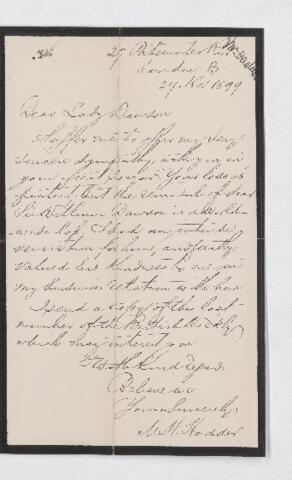 27 Paternoster Row
London
29 Nov 1899
Dear Lady Dawson
Suffer me to offer my very
sincere sympathy with you in
your great sorrow. Your loss is
but the removal of dear
Sir William Dawson is a world
wide loss. I had an
veneration for him, and greatly
valued his kindness to me in
my business relation with him
I send a copy of the last
number of the British Weekly
which may interest you
With kind regards
Believe me
Yours Sincerely
M. H. Hodder